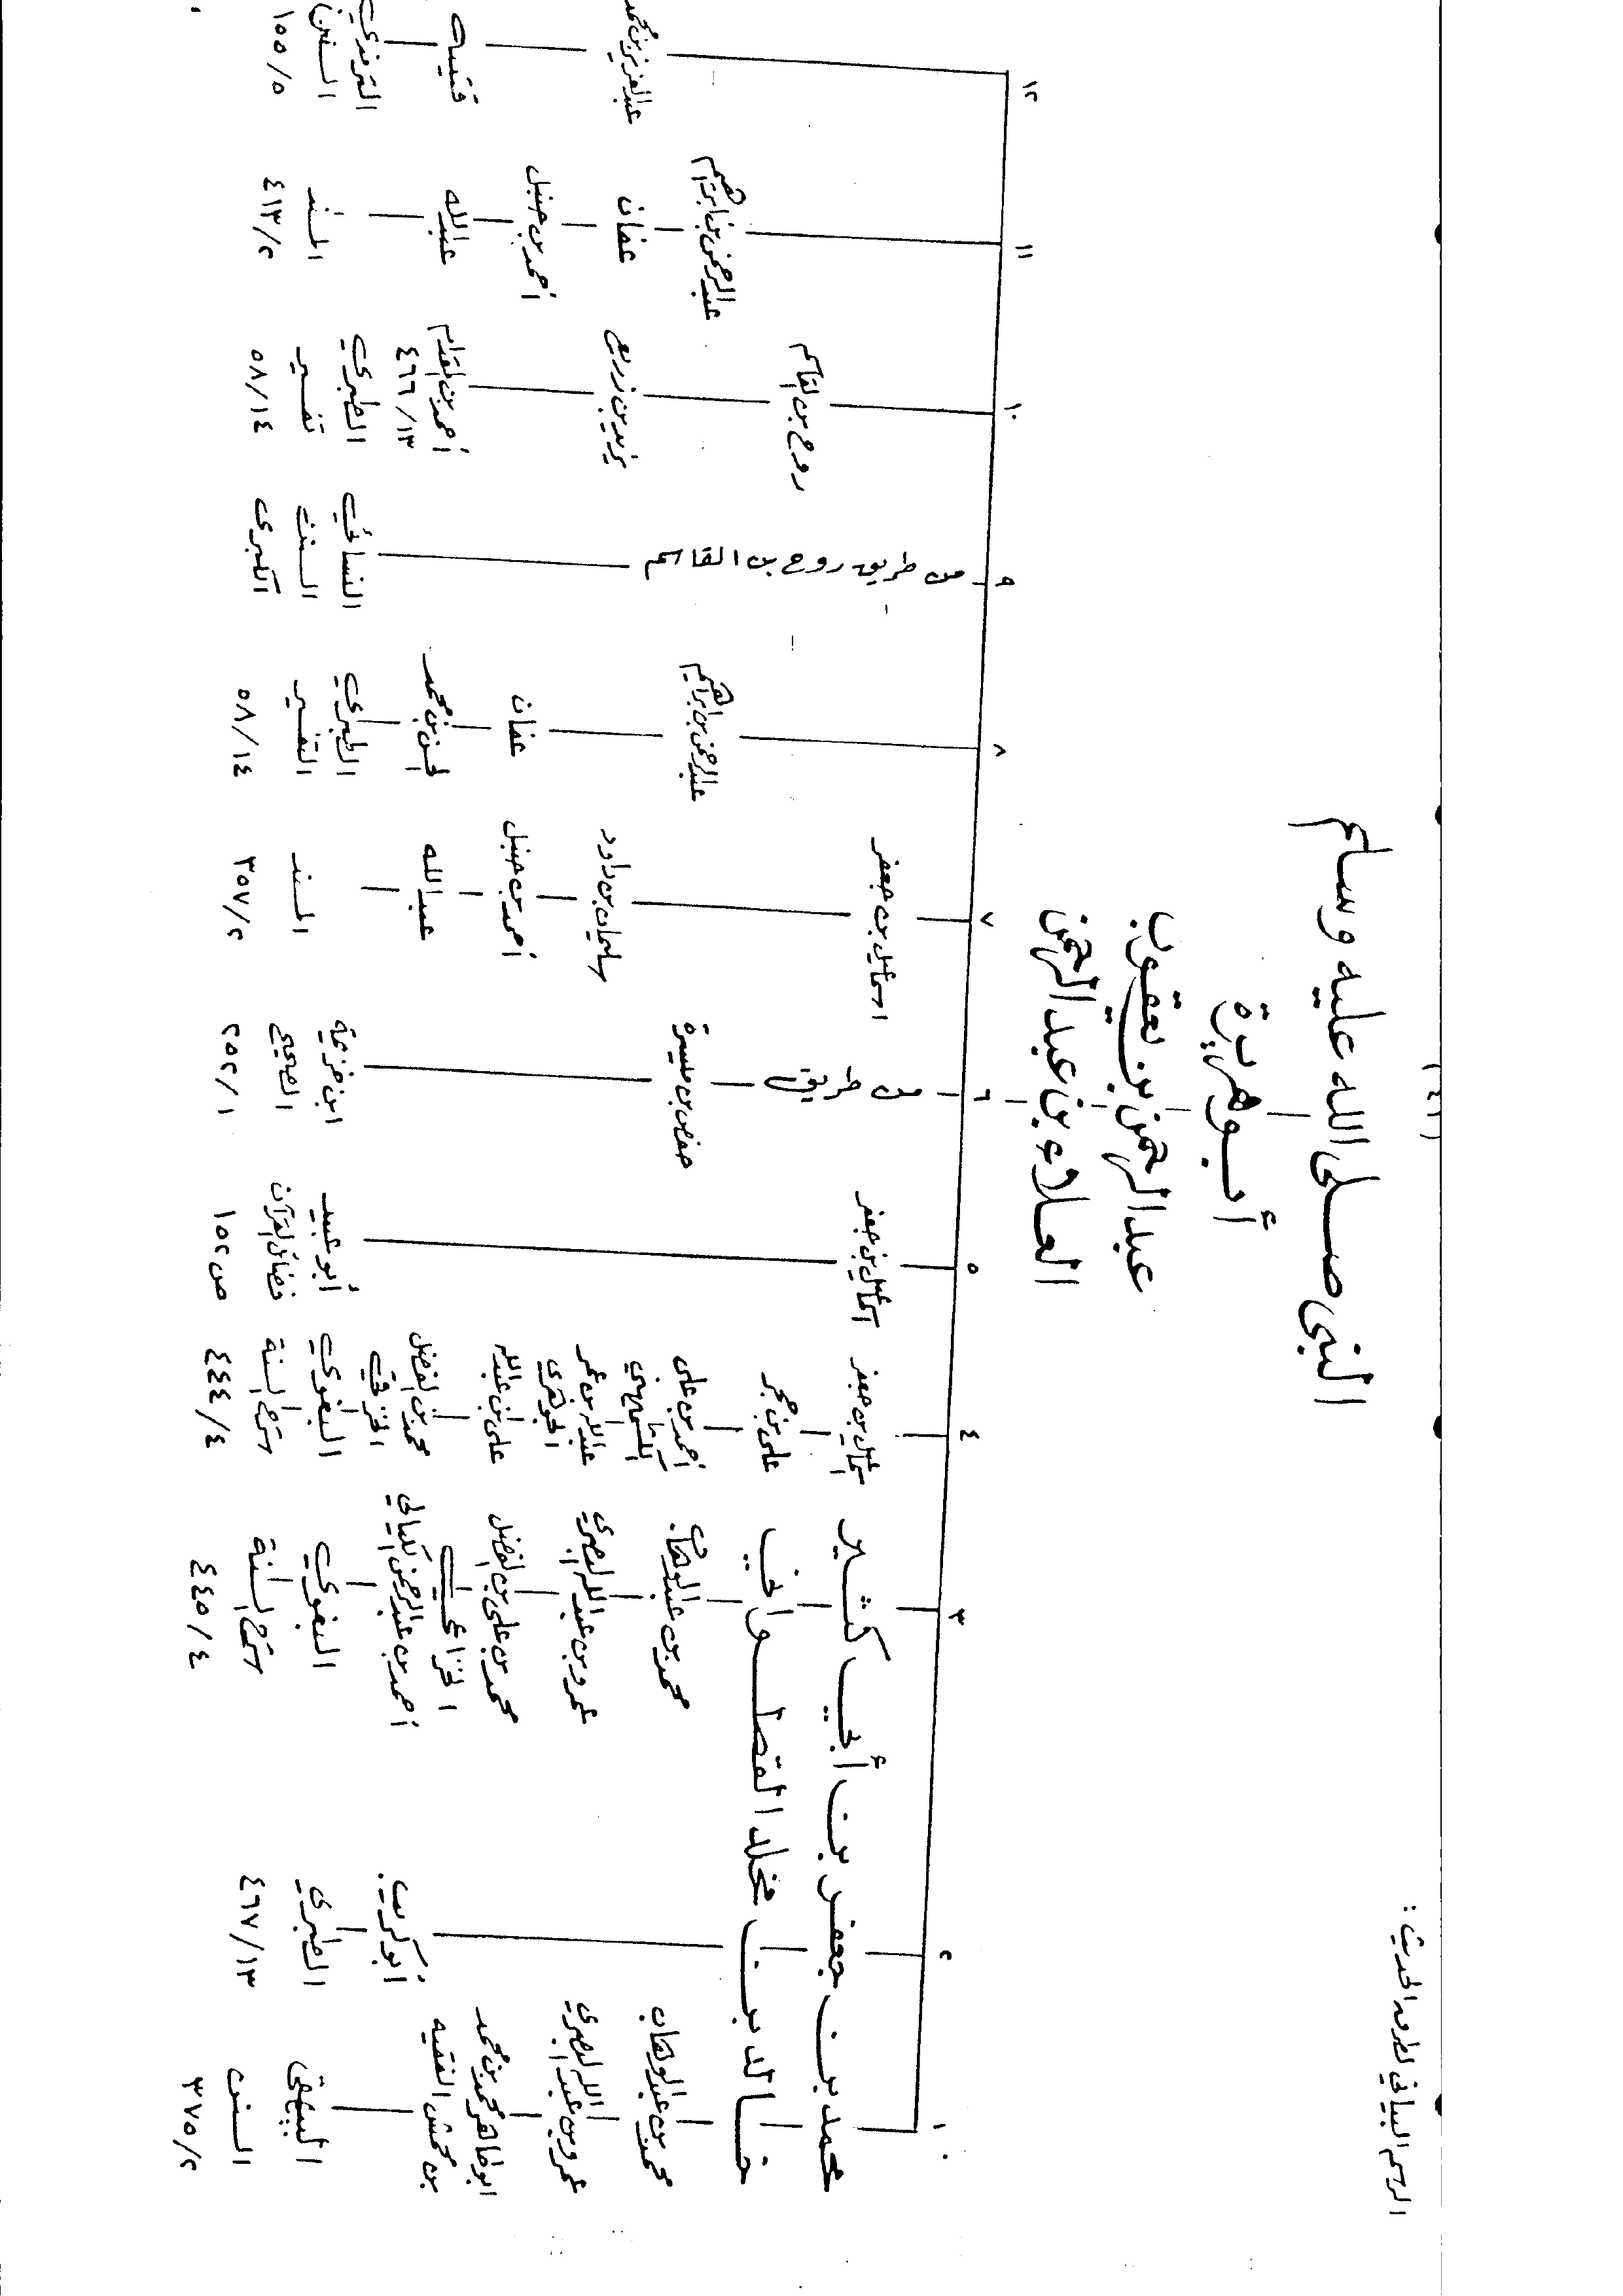 (٤٦)
الرسم البياني لطرق الحديث :
النبى صلى الله عليه وسلم
أبو هريرة
عبد الرحمن بن يعقوب
العلاء بن عبد الرحمن
١
محمد بن جعفر بن أبي كثير
خالد بن مخلد القطواني
محمد بن عبد الوهاب
عمرو بن عبد الله البصري
ابو طاهر محمد بن محمد
بن محمش الفقيه
البيهقى
السنن
٣٧٥/٢
٢
أبو كريب
الطبري
٤٦٧/١٣
٣
محمد بن عبد الوهاب
عمرو بن عبد الله البصري
محمد بن علي بن الفضل
الخزاعي
أحمد بن عبد الرحمن الكيالي
البغوي
شرح السنة
٤٤٥/٤
٤
اسماعيل بن جعفر
على بن حجر
أحمد بن على
الكشميهني
عبد الله بن عمر
الجوهري
على بن عبد الله
محمد بن الفضل
الخرقي
البغوي
شرح السنة
٤٤٤/٤
٥
اسماعيل بن جعفر
أبو عبيد
فضائل القرآن
ص ١٥٢
٦
من طريق
حفص بن ميسرة
ابن خزيمة
الصحيح
٢٥٢/١
٧
اسماعيل بن جعفر
سليمان بن داود
أحمد بن حنبل
عبد الله
المسند
٣٥٧/٢
٨
عبد الرحمن بن إبراهيم
عفان
الحسن بن محمد
الطبري
التفسير
٥٨/١٤
٩
من طريق روح بن القاسم
النسائي
السنن
الكبرى
١٠
روح بن القاسم
يزيد بن زريع
أحمد بن المقدام
٤٦٦/١٣
الطبري
تفسير
٥٨/١٤
١١
عبد الرحمن بن ابراهيم
عفان
أحمد بن حنبل
عبد الله
المسند
٤١٣/٢
١٢
عبد العزيز بن محمد
قتيبه
الترمذي
السنن
١٥٥/٥